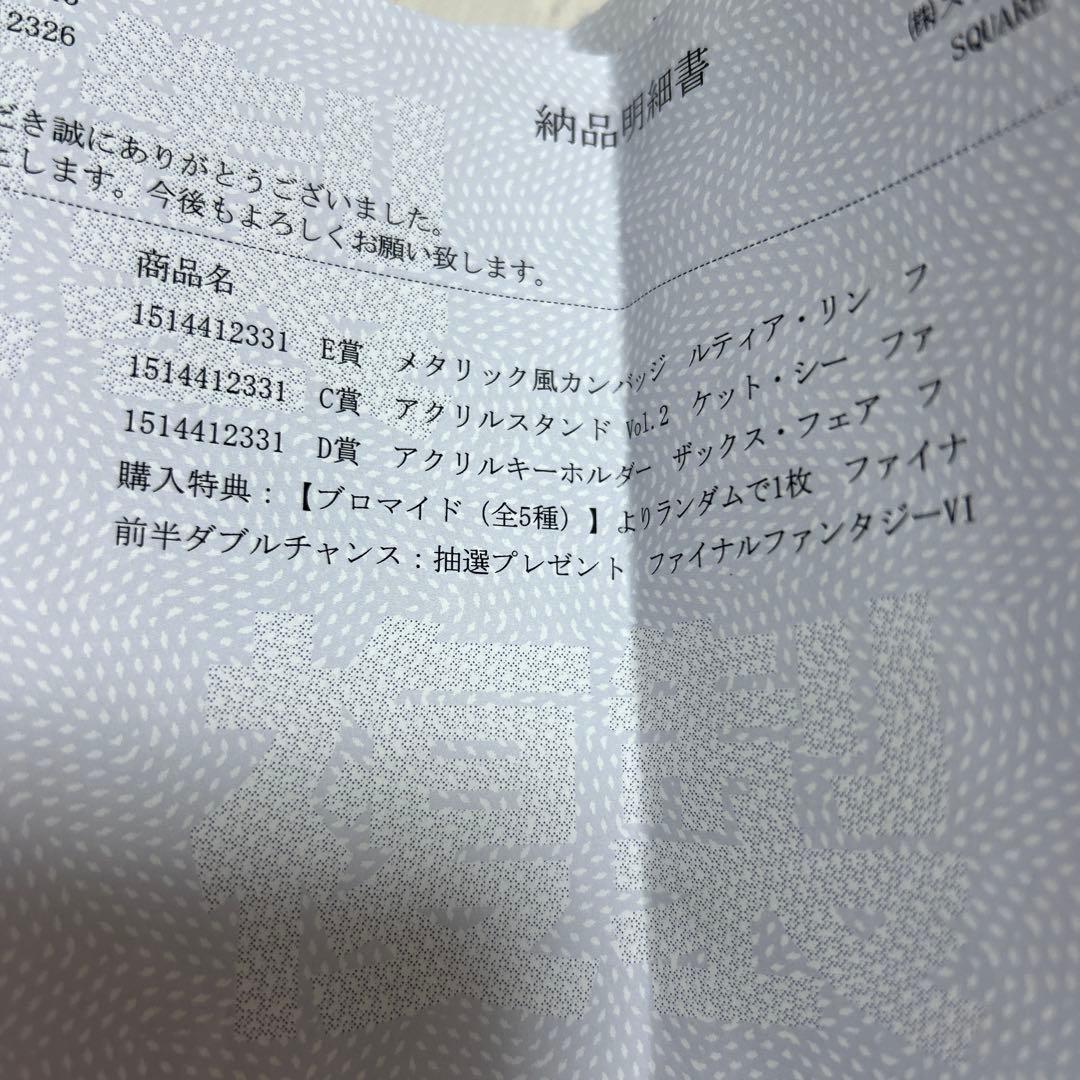 2326
㈱ス
SQUARE
納品明細書
どき誠にありがとうございました。
にします。今後もよろしくお願い致します。
商品名
1514412331 E賞 メタリック風カンバッジ ルティア・リン フ
1514412331 C賞 アクリルスタンド Vol.2 ケット・シー ファ
1514412331 D賞 アクリルキーホルダー ザックス・フェア フ
購入特典：【ブロマイド（全5種）】よりランダムで1枚 ファイナ
前半ダブルチャンス：抽選プレゼント ファイナルファンタジーVI
複製